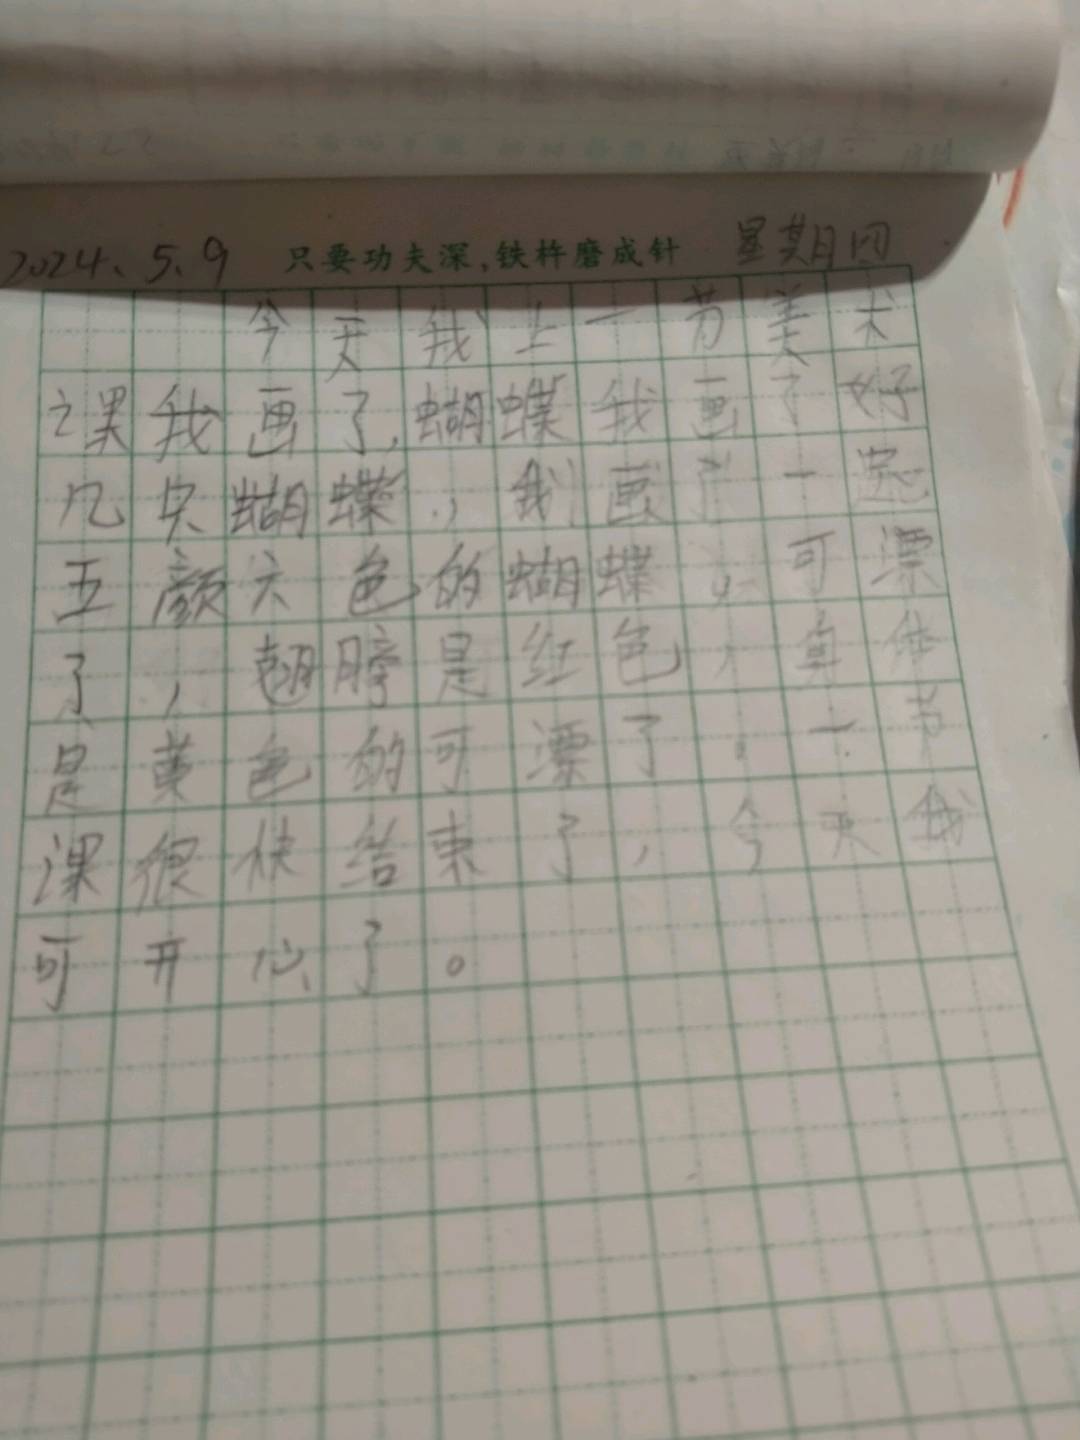 2024、5、9 只要功夫深,铁杵磨成针 星期四
今天我上一节美术
课我画了,蝴蝶我画了好
几只蝴蝶,我画了一
五颜六色的蝴蝶,可漂
了,翅膀是红色,身体
是黄色的可漂了。一节
课很快结束了,今天我
可开心了。